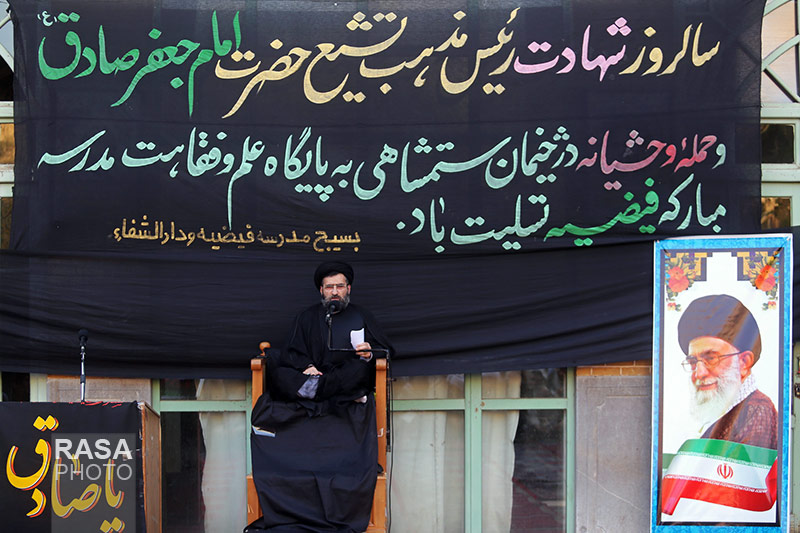 سالروز شهادت رئیس مذهب تشیع حضرت امام جعفر صادق (ع)
و حملهٔ وحشیانه دژخیمان ستمشاهی به پایگاه علم و فقاهت مدرسه
مبارکه فیضیه تسلیت باد.
بسیج مدرسه فیضیه و دارالشفاء
یا صادق
RASA
PHOTO